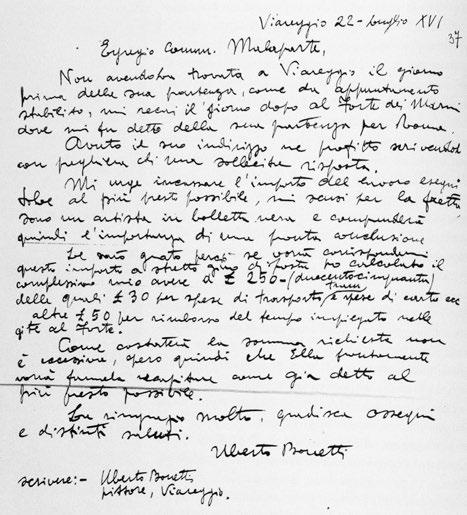 Viareggio 22 - Luglio XVI
37
Egregio Comm. Malaparte,
Non avendola trovata a Viareggio il giorno
prima della sua partenza, come da appuntamento
stabilito, mi recai il giorno dopo al Forte dei Marmi
dove mi fu detto della sua partenza per Roma.
Avuto il suo indirizzo ne profitto scrivendole
con preghiera di una sollecita risposta.
Mi urge incassare l'importo del lavoro
al più presto possibile, mi scusi per la fretta
sono un artista in bolletta nera e comprenderà
quindi l'importanza di una pronta conclusione
Le sarò grato perciò se vorrà corrispondermi
questo importo a stretto giro di posta ho calcolato il
complessivo mio avere a £ 250 - (duecentocinquanta)
delle quali £ 30 per spese di trasporto, e spese di carta ecc
altre £ 50 per rimborso del tempo impiegato nelle
gite al Forte.
Come constaterà la somma richiesta non
è eccessiva, spero quindi che Ella prontamente
vorrà farmela recapitare come già detto al
più presto possibile.
La ringrazio molto, gradisca ossequi
e distinti saluti.
Uberto Bonetti
scrivere:- Uberto Bonetti
pittore, Viareggio.